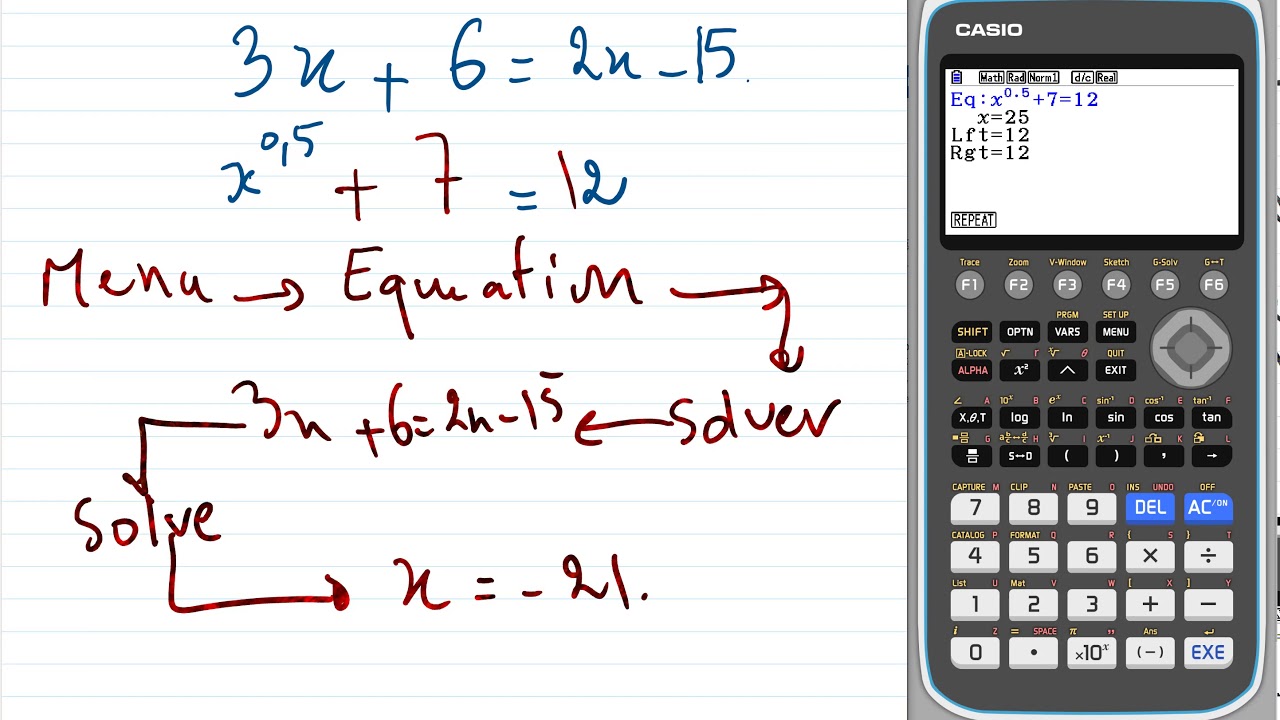 3x + 6 = 2x - 15.
x^0,5 + 7 = 12
Menu → Equation →
3x + 6 = 2x - 15 ← Solver
Solve
→ x = - 21.
CASIO
Math Rad Norm1 d/c Real
Eq:x^0.5+7=12
x=25
Lft=12
Rgt=12
REPEAT
Trace Zoom V-Window Sketch G-Solv G↔T
F1 F2 F3 F4 F5 F6
PRGM SET UP
SHIFT OPTN VARS MENU
A-LOCK √ r ˣ√ θ QUIT
ALPHA x² ^ EXIT
∠ A 10ˣ B eˣ C sin⁻¹ D cos⁻¹ E tan⁻¹ F
X,θ,T log ln sin cos tan
G a b/c↔d/c H ³√ I x⁻¹ J K L
S↔D ( ) , →
CAPTURE M CLIP N PASTE O INS UNDO OFF
7 8 9 DEL AC/ON
CATALOG P FORMAT Q R { S } T
4 5 6 × ÷
List U Mat V W [ X ] Y
1 2 3 + −
i Z = SPACE π " Ans ↵
0 . ×10ˣ (−) EXE